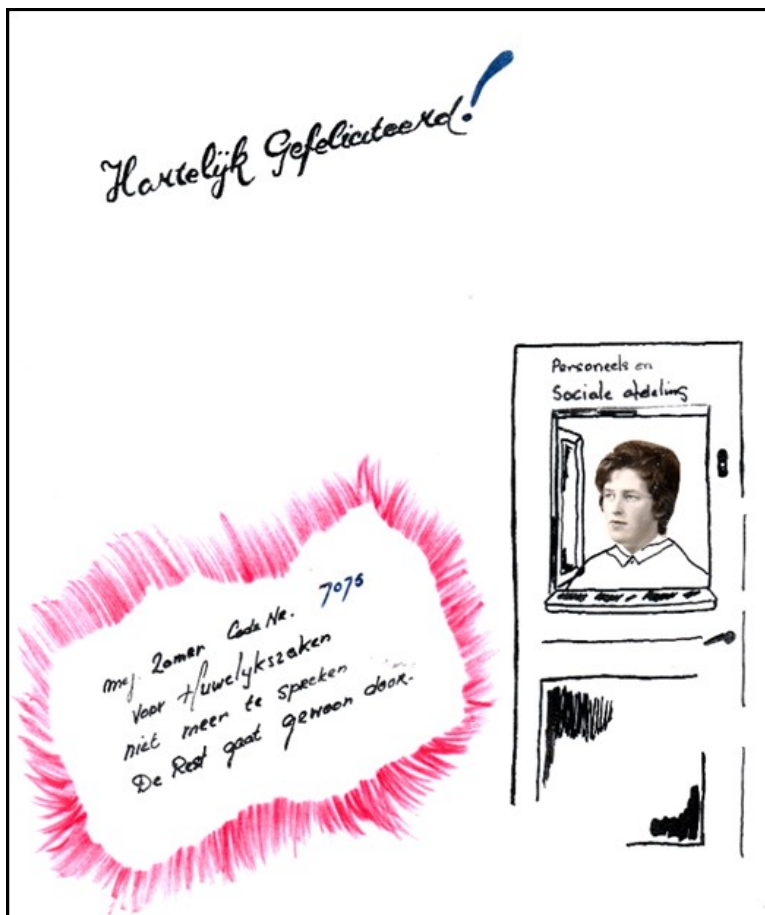 Hartelijk Gefeliciteerd!
Personeels en
Sociale afdeling
mej. Zomer Code Nr. 7075
voor Huwelijkszaken
niet meer te spreken
De Rest gaat gewoon door.